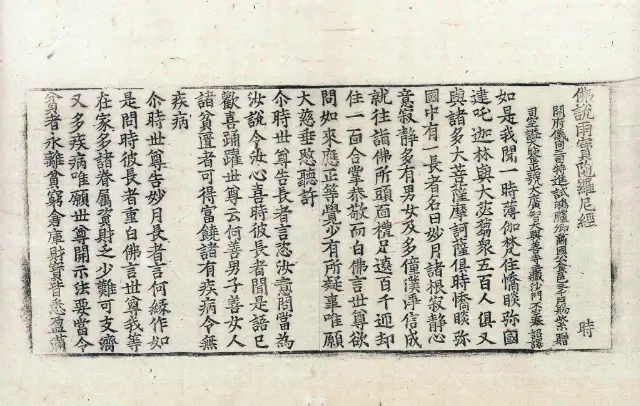 佛說雨寶陁羅尼經 時
開府儀同三司特進試鴻臚卿肅國公食邑三千戶賜紫贈
司空謚大鑒正號大廣智大興善寺三藏沙門不空奉 詔譯
如是我聞一時薄伽梵住憍睒弥國
達吒迦林與大苾芻衆五百人俱又
與諸多大菩薩摩訶薩俱時憍睒弥
國中有一長者名曰妙月諸根寂静心
意寂静多有男女及多僮僕淨信成
就往詣佛所頭面礼足遶百千迊却
住一面合掌恭敬而白佛言世尊欲
問如來應正等覺少有所疑事唯願
大慈垂愍聽許
尒時世尊告長者言恣汝意問當為
汝說令汝心喜時彼長者聞是語已
歡喜踊躍世尊云何善男子善女人
諸貧匱者可得富饒諸有疾病令無
疾病
尒時世尊告妙月長者言何緣作如
是問時彼長者重白佛言世尊我等
在家多諸眷屬資財乏少難可支濟
又多疾病唯願世尊開示法要當令
貧者永離貧窮倉庫財寶皆悉盈滿